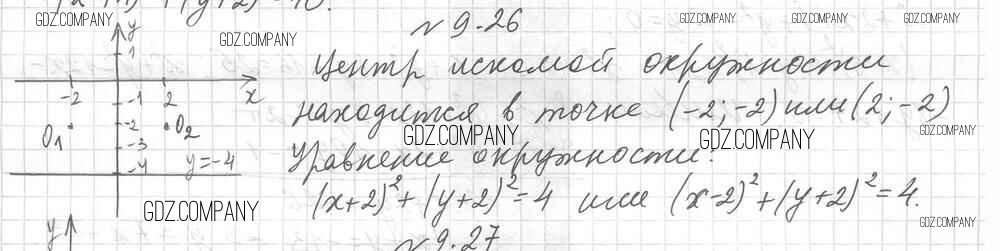 (y+2)
GDZ.COMPANY GDZ.COMPANY GDZ.COMPANY GDZ.COMPANY
№ 9.26
GDZ.COMPANY
y
1
Центр искомой окружности
-2 -1 2 x
находится в точке (-2; -2) или (2; -2)
O1 -2 O2
GDZ.COMPANY GDZ.COMPANY GDZ.COMPANY
-3
Уравнение окружности:
-4 y=-4
(x+2)²+(y+2)²=4 или (x-2)²+(y+2)²=4.
GDZ.COMPANY GDZ.COMPANY
y
№ 9.27